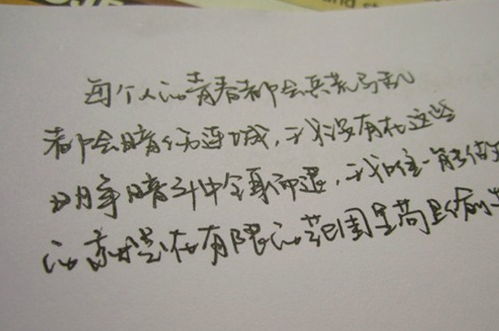 每个人的青春都会兵荒马乱
都会暗伤连城，我没有在这些
明争暗斗中全身而退，我唯一能做的
的就是在有限的范围里苟且偷